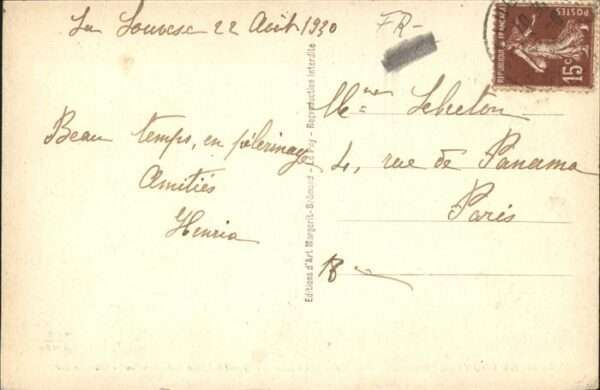 La Louvesc 22 Août 1930
FR-
Beau temps, en pèlerinage
Amitiés
Henria
Editions d'Art Margerit-Brémond - Le Puy - Reproduction interdite
POSTES
15c
4, rue de Panama
Paris
18